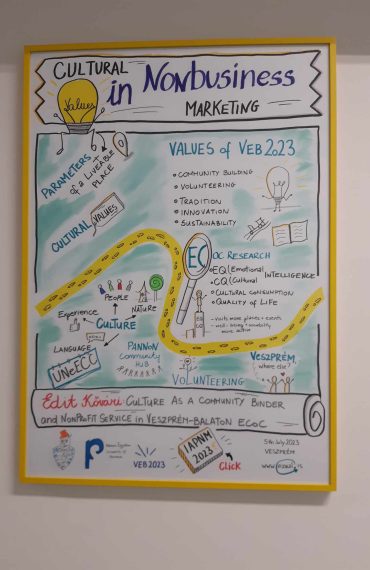 CULTURAL
in NONbusiness
Values
MARKETING
PARAMETERS
of a LIVEABLE
PLACE
VALUES of VEB 2023
COMMUNITY BUILDING
VOLUNTEERING
TRADITION
INNOVATION
SUSTAINABILITY
CULTURAL VALUES
ECOC RESEARCH
EQ (Emotional
CQ (Cultural INTELLIGENCE
CULTURAL CONSUMPTION
QUALITY of LIFE
visits more places + events
PEOPLE
NATURE
Experience
CULTURE
LANGUAGE
UNeECC
PANNON
Community
HUB
VOLUNTEERING
VESZPRÉM,
where else?
Edit Kővári CULTURE AS A COMMUNITY BINDER
and NONPROFIT SERVICE in VESZPRÉM-BALATON ECOC
VEB 2023
IAPNM
2023
Click
5th July 2023
VESZPRÉM